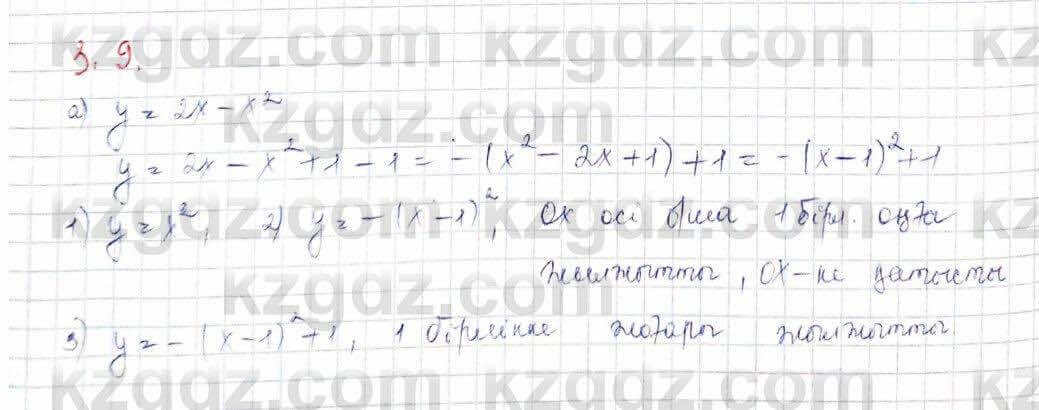 3.9.
a) y = 2x - x²
y = 2x - x² + 1 - 1 = -(x² - 2x + 1) + 1 = -(x-1)² + 1
1) y = x², 2) y = -(x-1)², Ox осі б/ша 1 бірл. оңға
жылжытты, OX-ке қатысты
3) y = -(x-1)² + 1, 1 бірлікке жоғары жылжытты